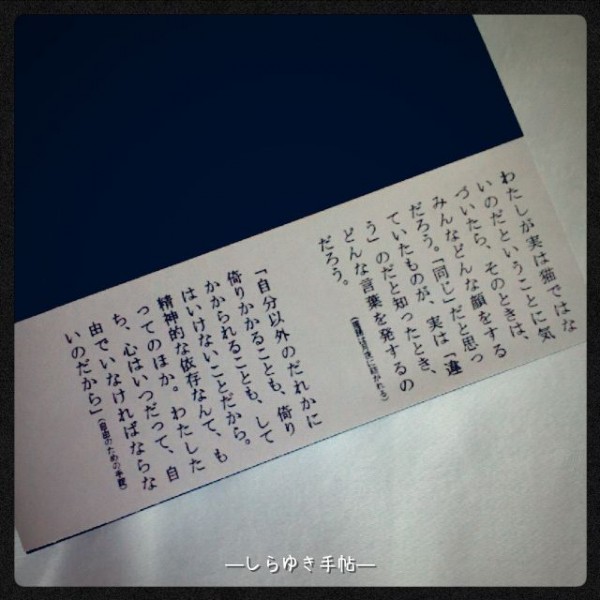 わたしが実は猫ではな
いのだということに気
づいたら、そのときは、
みんなどんな顔をする
だろう。「同じ」だと思っ
ていたものが、実は「違
う」のだと知ったとき、
どんな言葉を発するの
だろう。
「自分以外のだれかに
倚りかかることも、倚り
かかられることも、して
はいけないことだから。
精神的な依存なんて、も
ってのほか。わたした
ち、心はいつだって、自
由でいなければならな
いのだから」
―しらゆき手帖―